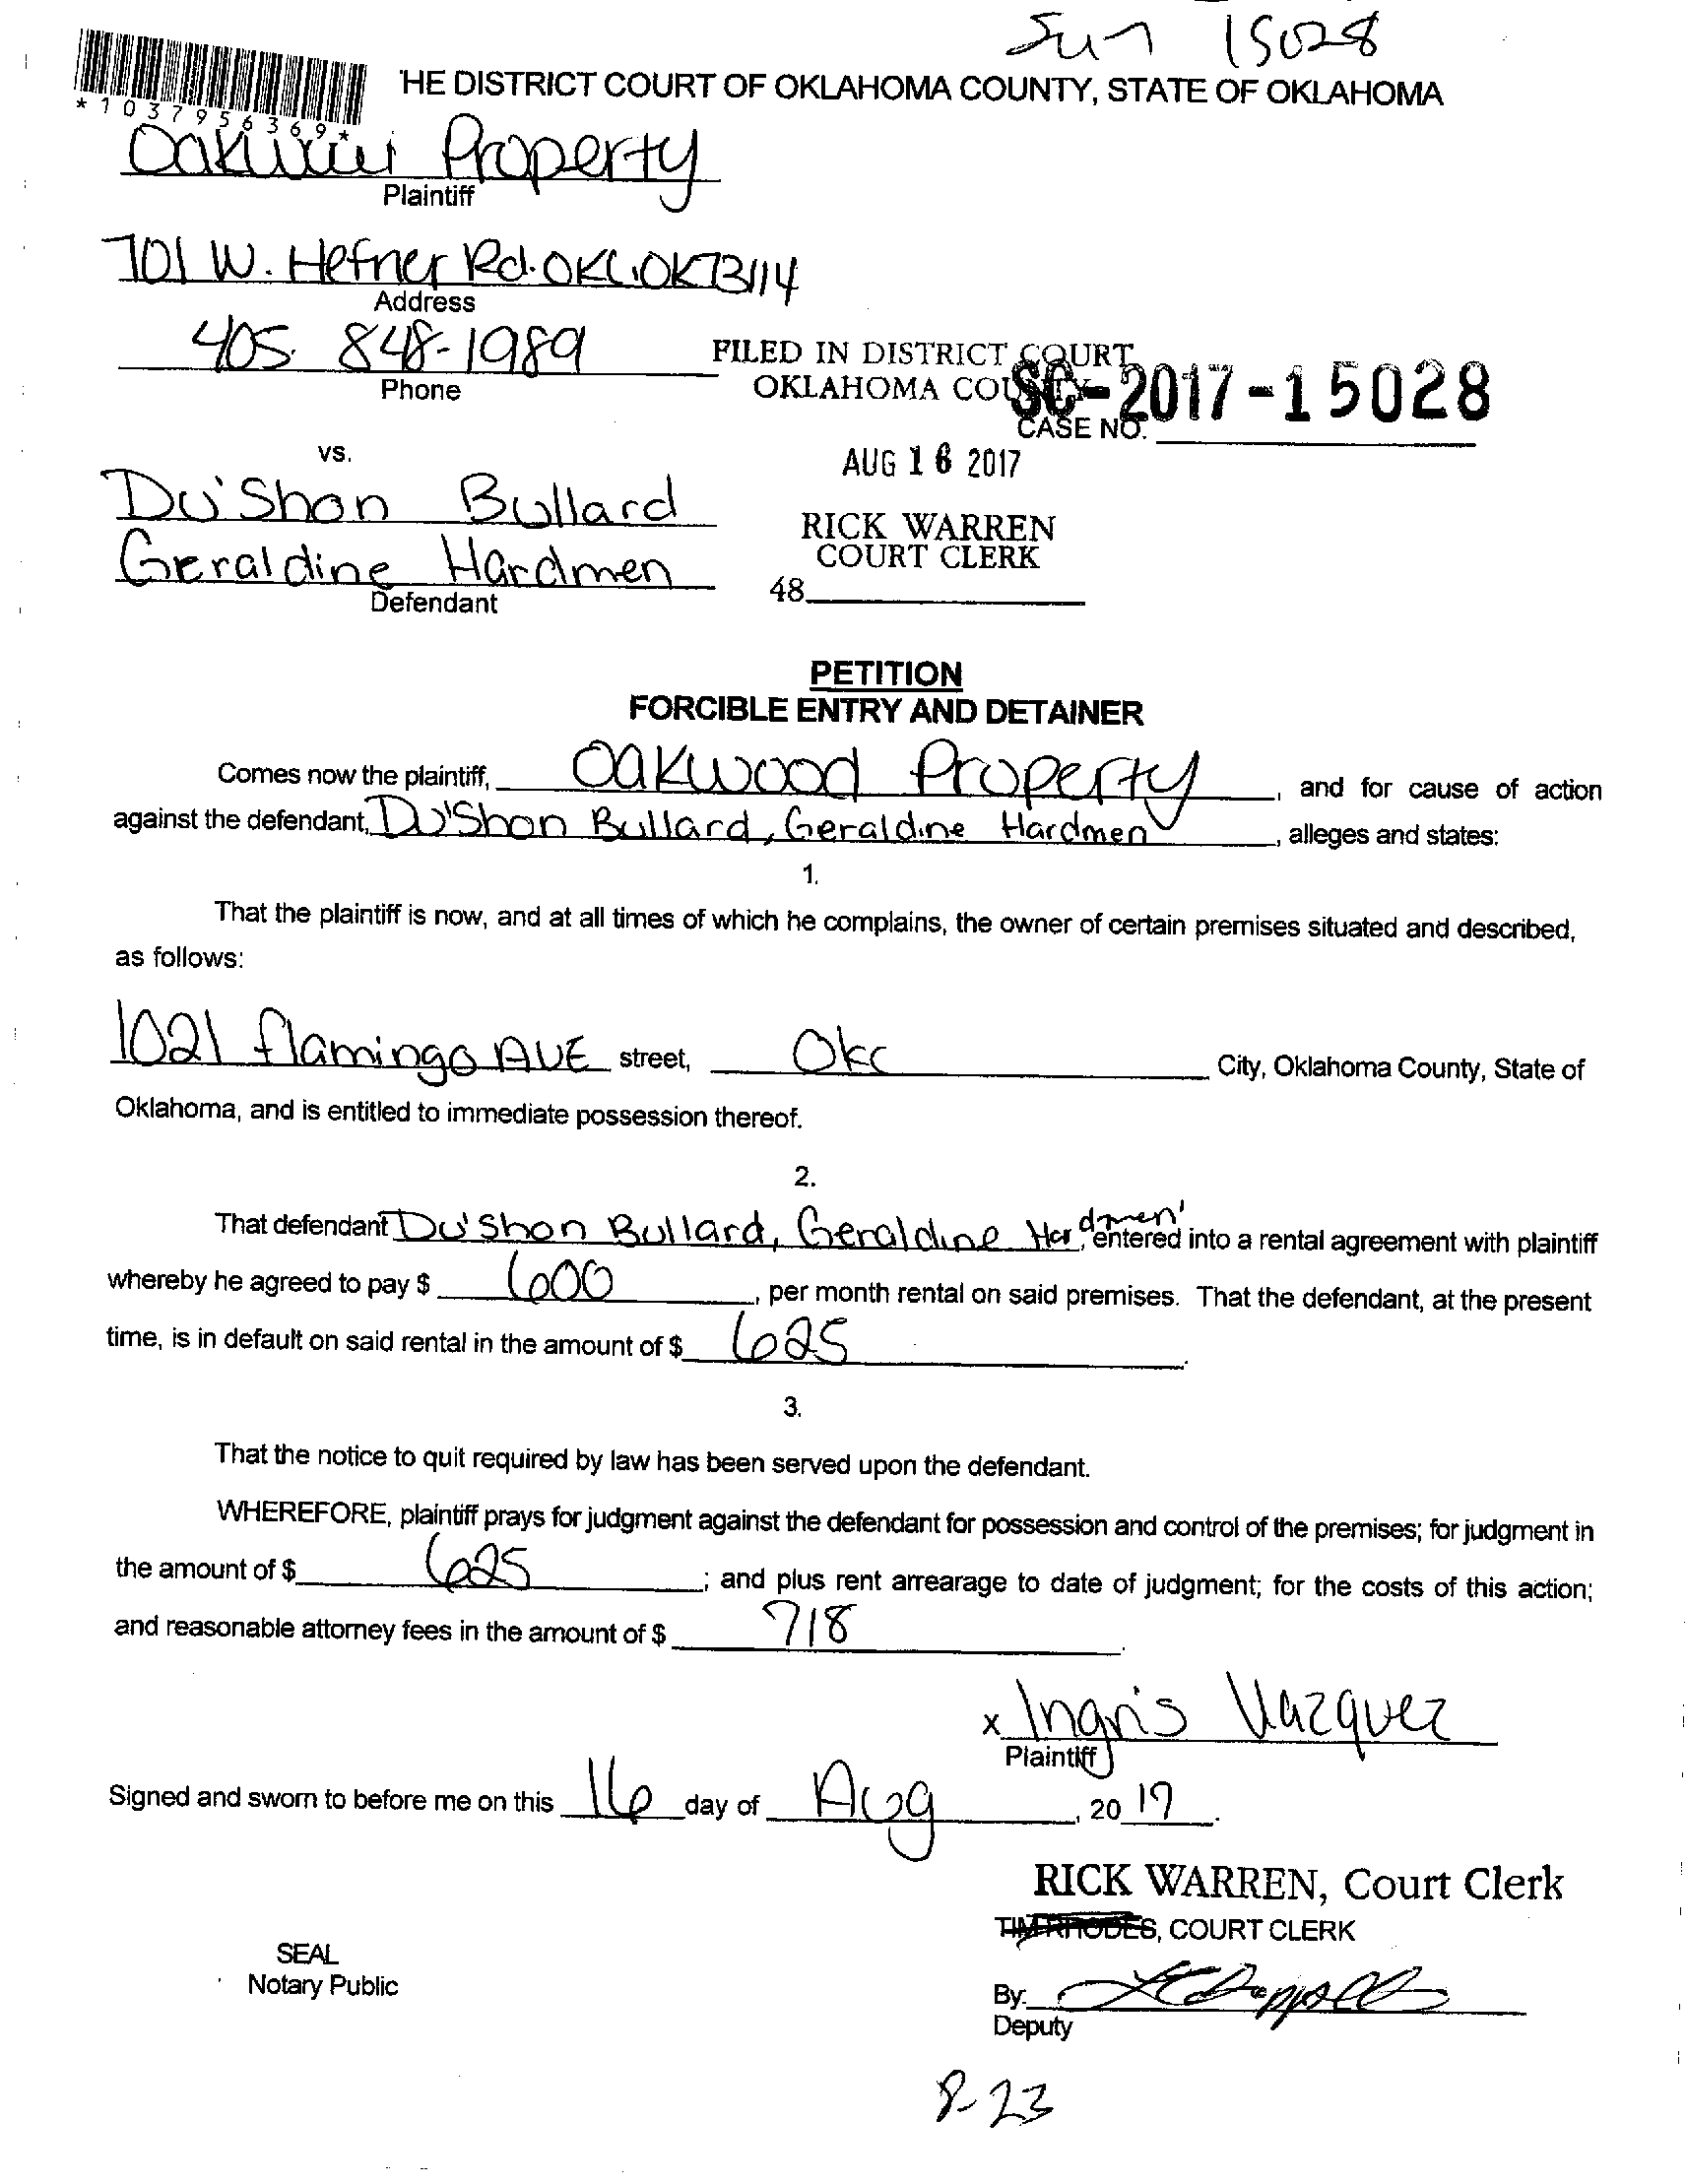 15028
HE DISTRICT COURT OF OKLAHOMA COUNTY, STATE OF OKLAHOMA
*1037956369*
Property
Plaintiff
701 W. Hefner Rd. OKC, OK 73114
Address
405. 848-1989
Phone
FILED IN DISTRICT COURT
OKLAHOMA COUNTY
SC-2017-15028
CASE NO.
AUG 16 2017
vs.
Du'Shon Bullard
RICK WARREN
COURT CLERK
Geraldine Hardmen
48
Defendant
PETITION
FORCIBLE ENTRY AND DETAINER
Comes now the plaintiff, Oakwood Property, and for cause of action
against the defendant, Du'Shon Bullard, Geraldine Hardmen, alleges and states:
1.
That the plaintiff is now, and at all times of which he complains, the owner of certain premises situated and described,
as follows:
1021 flamingo AVE street, Okc City, Oklahoma County, State of
Oklahoma, and is entitled to immediate possession thereof.
2.
That defendant Du'Shon Bullard, Geraldine Hardmen, entered into a rental agreement with plaintiff
whereby he agreed to pay $ 600, per month rental on said premises. That the defendant, at the present
time, is in default on said rental in the amount of $ 625.
3.
That the notice to quit required by law has been served upon the defendant.
WHEREFORE, plaintiff prays for judgment against the defendant for possession and control of the premises; for judgment in
the amount of $ 625; and plus rent arrearage to date of judgment; for the costs of this action;
and reasonable attorney fees in the amount of $ 718.
x Ingris Vazquez
Plaintiff
Signed and sworn to before me on this 16 day of Aug, 20 17.
RICK WARREN, Court Clerk
TIM RHODES, COURT CLERK
SEAL
Notary Public
By:
Deputy
8-23